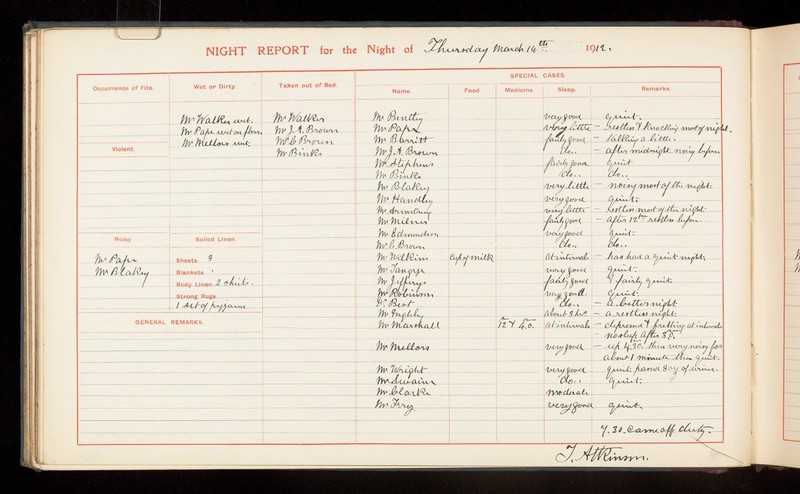 NIGHT REPORT for the Night of Thursday March 14th 1912.
Occurrence of Fits. Wet or Dirty. Taken out of Bed. SPECIAL CASES.
Name. Food. Medicine. Sleep. Remarks.
Mr Walker wet. Mr Walker Mr Bentley very good quiet.
Mr Pape wet on floor Mr J. A. Brown Mr Pape very little - restless & knocking most of night.
Mr Mellors wet. Mr C Brown Mr Barritt fairly good - talking a little.
Violent. Mr Binks Mr J. A. Brown do.. - after midnight. noisy before
Mr Stephens fairly good quiet
Mr Binks do.. do..
Mr Blakey very little - noisy most of the night.
Mr Handley very good quiet.
Mr Armitage very little - restless most of the night.
Mr Milner fairly good - after 12 restless before
Mr Edmondson very good quiet.
Noisy. Soiled Linen. Mr C. Brown do.. do..
Mr Pape Sheets 3 Mr Wilkins cup of milk at intervals - has had a quiet night
Mr Blakey Blankets Mr very good quiet.
Body Linen 2 shirts. Mr Jefferys fairly good & fairly quiet.
Strong Rugs Mr Robinson very good quiet.
1 set of pyjamas Dr Best do.. - a better night
Mr about 3 hrs - a restless night.
GENERAL REMARKS. Mr Marshall 12 & 4.0. at intervals - depressed & fretting at intervals
no sleep after 3
Mr Mellors very good - up 4.30. then very noisy for
about 1 minute then quiet.
Mr Wright very good quiet. passed 8 oz of urine.
Mr Swain do.. quiet.
Mr Clarke moderate
Mr Fry very good quiet.
7.30. Came off duty.
J. Atkinson.